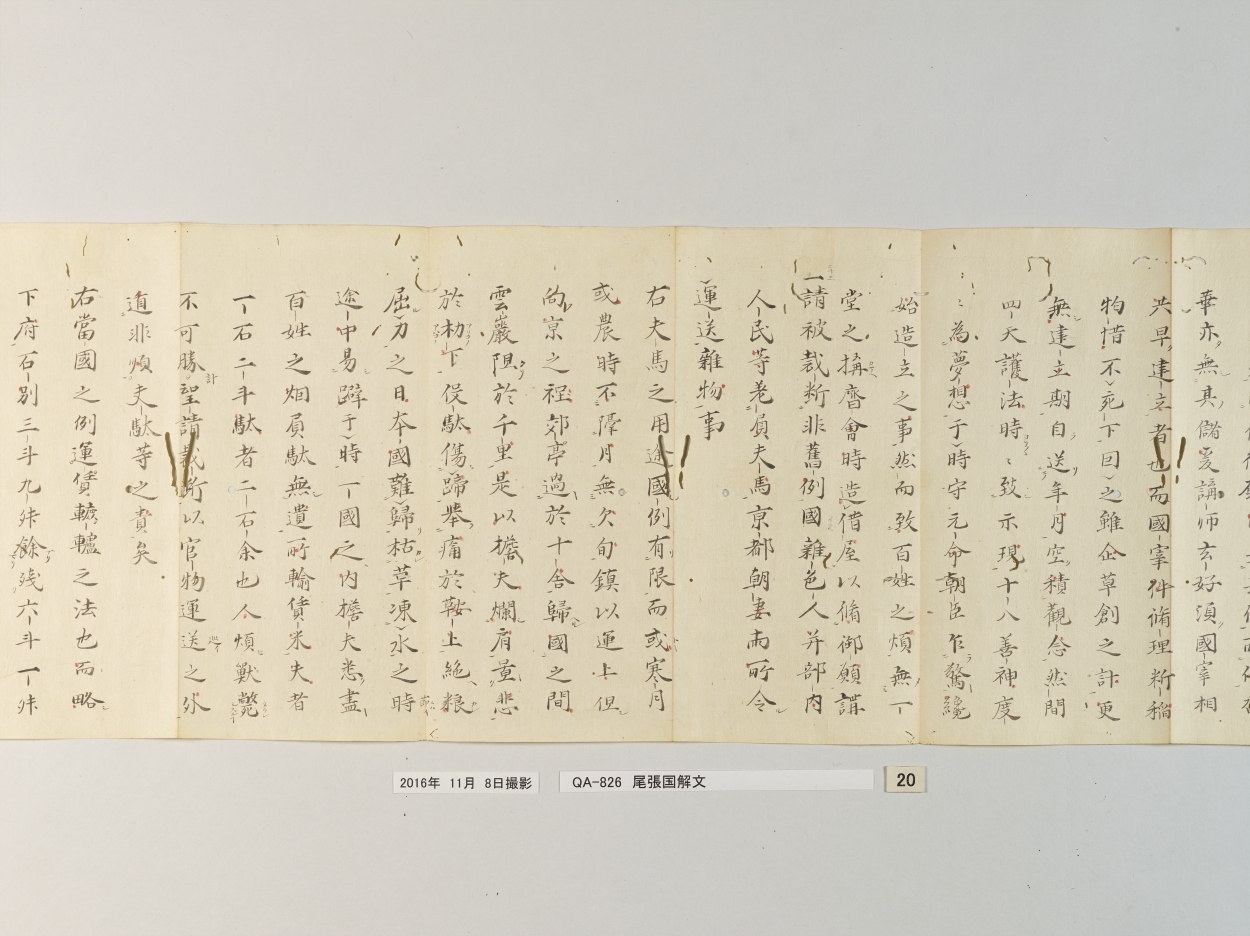 華亦無其儲爰講師玄好須國宰相
共早建立者也而國宰件脩理料稲
物惜不宛下回之雖企草創之計更
無建立期自送年月空積觀念然間
四天護法時〻致示現十八善神度
〻為夢想于時守元命朝臣乍驚纔
始造立之事然而致百姓之煩無一
堂之構齊會時造借屋以脩御願講
一請被裁断非舊例國雜色人并部内
人民等差負夫馬京都朝妻両所令
運送雜物事
右夫馬之用途國例有限而或寒月
或農時不隆月無欠旬鎮以運上但
向京之程郊亭過於十舎歸國之間
雲巖阻於千里是以擔夫爛肩量悲
於杖下役駄傷蹄挙痛於鞍上絶粮
屈力之日本國難歸枯草凍水之時
途中易躃于時一國之内擔夫悉盡
百姓之烟負駄無遺所輸賃米夫者
一石二斗駄者二石余也人煩獸斃
不可勝計望請裁断以官物運送之外
道非煩夫駄等之責矣
右當國之例運賃轆轤之法也而略
下府石別三斗九升餘残六斗一升
2016年 11月 8日撮影
QA-826 尾張国解文
20